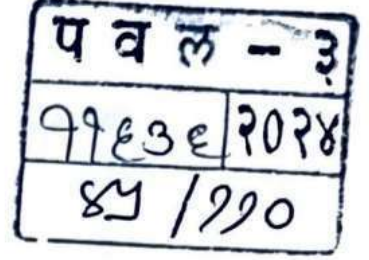 प व ल - ३
११६३६ २०२४
४५ /११०